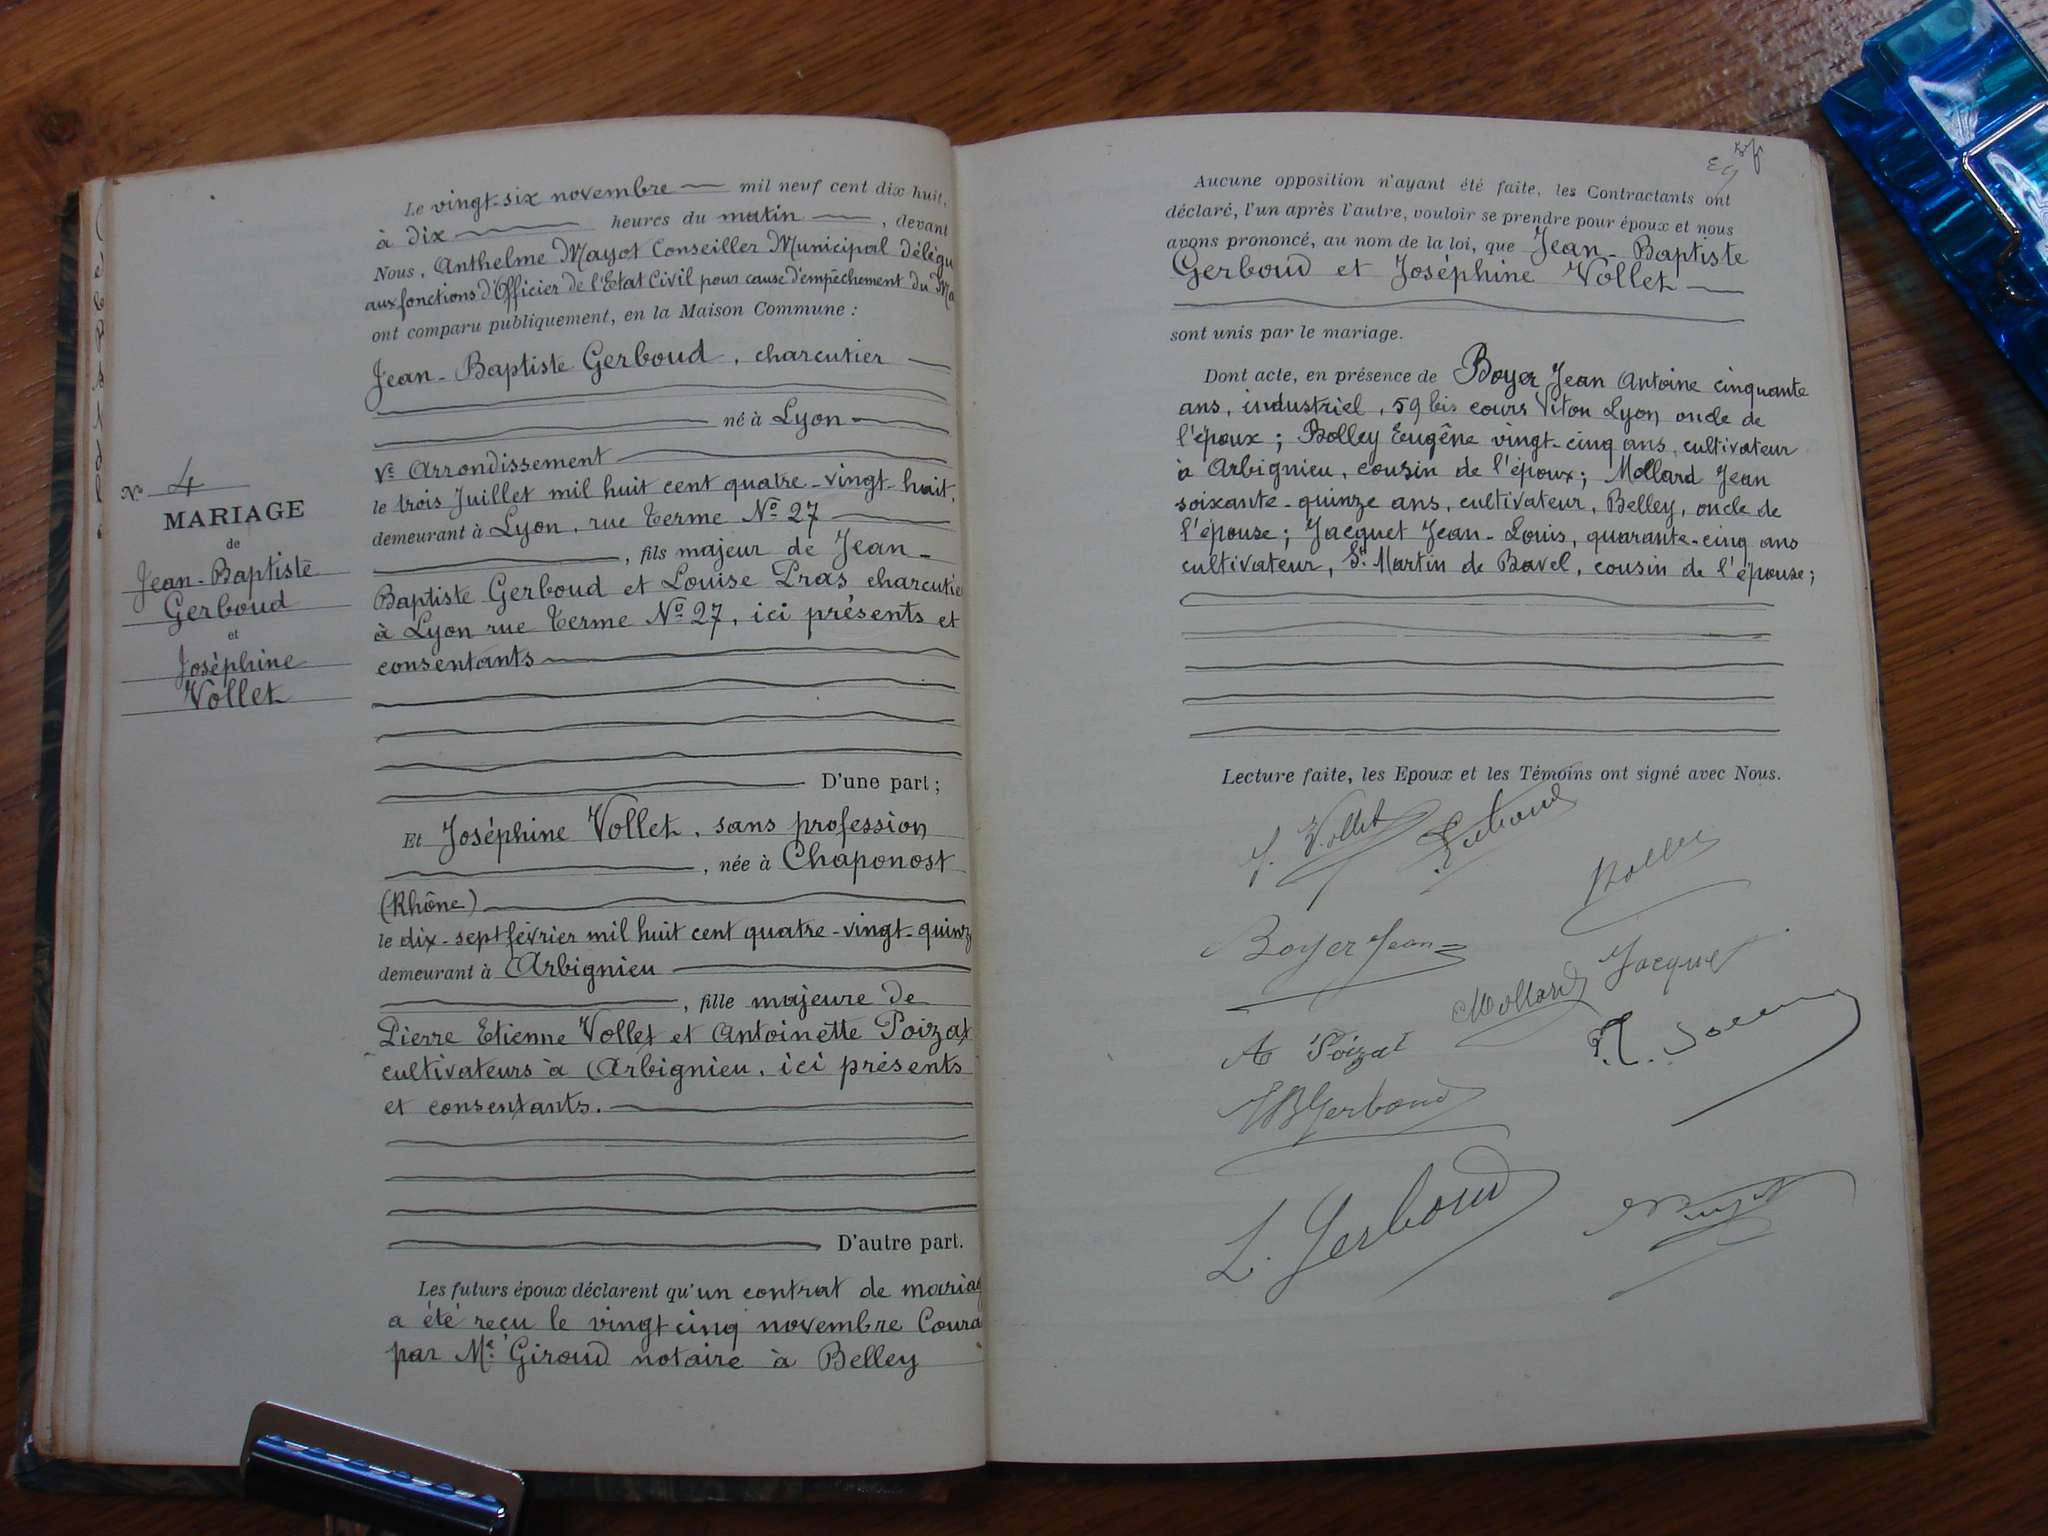 N° 4
MARIAGE
de
Jean-Baptiste
Gerboud
et
Joséphine
Vollet
Le vingt-six novembre mil neuf cent dix huit,
à dix heures du matin, devant
Nous, Anthelme Mayot Conseiller Municipal délégu
aux fonctions d'Officier de l'Etat Civil pour cause d'empêchement du Ma
ont comparu publiquement, en la Maison Commune :
Jean-Baptiste Gerboud, charcutier
né à Lyon
Ve Arrondissement
le trois Juillet mil huit cent quatre-vingt-huit,
demeurant à Lyon, rue Terme No 27
, fils majeur de Jean-
Baptiste Gerboud et Louise Pras charcutie
à Lyon rue Terme No 27, ici présents et
consentants
D'une part ;
Et Joséphine Vollet, sans profession
, née à Chaponost
(Rhône)
le dix-sept février mil huit cent quatre-vingt-quinz
demeurant à Arbignieu
, fille majeure de
Pierre Etienne Vollet et Antoinette Poizat
cultivateurs à Arbignieu, ici présents
et consentants.
D'autre part.
Les futurs époux déclarent qu'un contrat de mariag
a été reçu le vingt cinq novembre Coura
par Me Giroud notaire à Belley
Aucune opposition n'ayant été faite, les Contractants ont
déclaré, l'un après l'autre, vouloir se prendre pour époux et nous
avons prononcé, au nom de la loi, que Jean-Baptiste
Gerboud et Joséphine Vollet
sont unis par le mariage.
Dont acte, en présence de Boyer Jean Antoine cinquante
ans, industriel, 59 bis cours Viton Lyon oncle de
l'époux ; Bolley Eugêne vingt-cinq ans, cultivateur
à Arbignieu, cousin de l'époux ; Mollard Jean
soixante-quinze ans, cultivateur, Belley, oncle de
l'épouse ; Jacquet Jean-Louis, quarante-cinq ans
cultivateur, St Martin de Bavel, cousin de l'épouse ;
Lecture faite, les Epoux et les Témoins ont signé avec Nous.
J. Vollet Gerboud
Bolley
Boyer Jean
Jacquet
Mollard
A Poizat
JB Gerboud
L. Gerboud